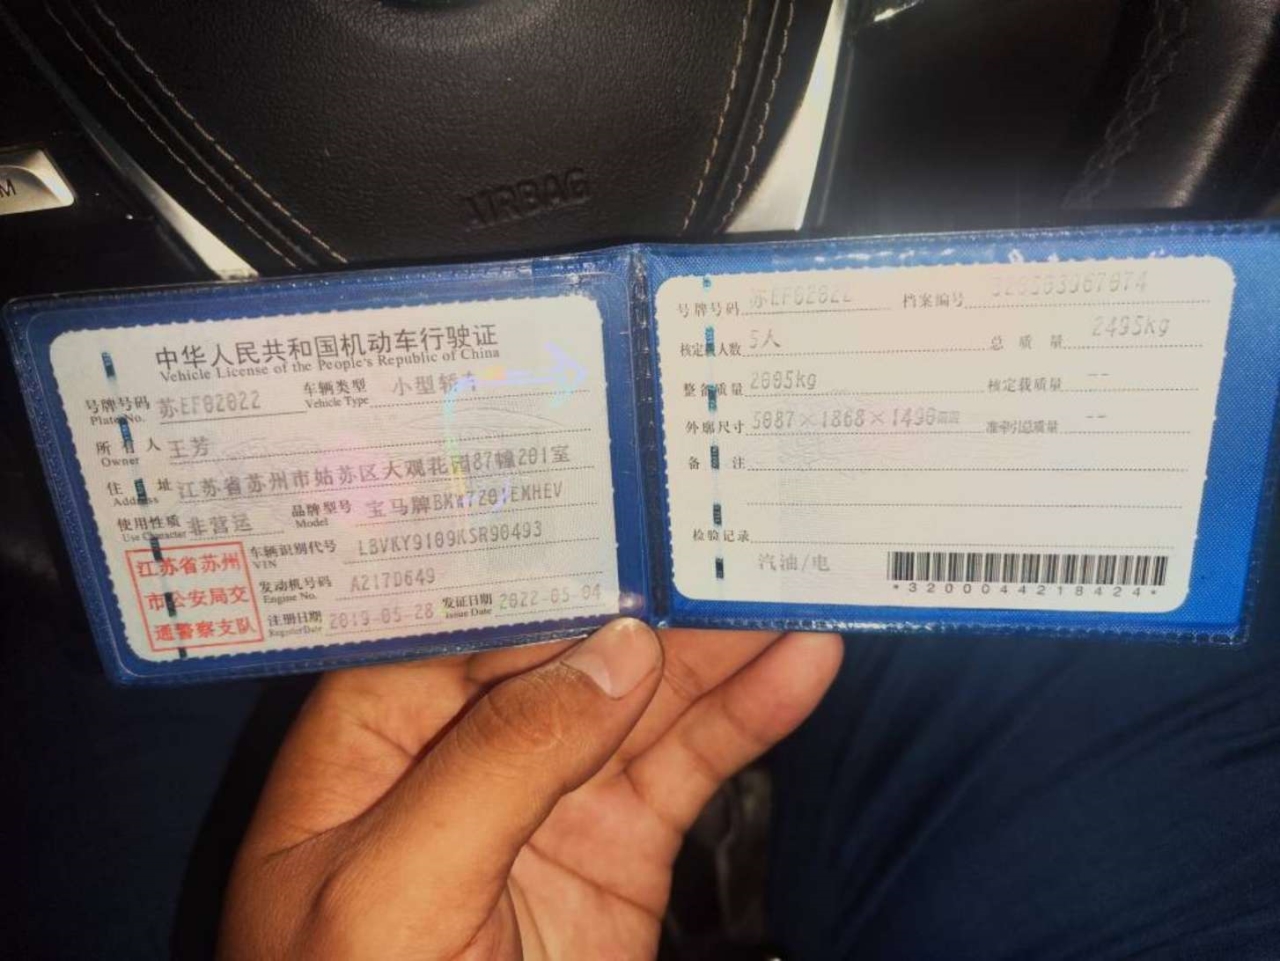 AIRBAG
M
中华人民共和国机动车行驶证
Vehicle License of the People's Republic of China
号牌号码 苏EF02022 车辆类型 小型轿车
Plate No. Vehicle Type
所有人 王芳
Owner
住址 江苏省苏州市姑苏区大观花园87幢201室
Address
使用性质 非营运 品牌型号 宝马牌BMW7201EMHEV
Use Character Model
江苏省苏州
市公安局交
通警察支队
车辆识别代号 LBVKY9109KSR90493
VIN
发动机号码 A217D649
Engine No.
注册日期 2019-05-28 发证日期 2022-05-04
Register Date Issue Date
号牌号码 苏EF02022 档案编号 320503967074
核定载人数 5人 总质量 2495kg
整备质量 2005kg 核定载质量 --
外廓尺寸 5087×1868×1490mm 准牵引总质量 --
备注
检验记录
汽油/电
*3200044218424*